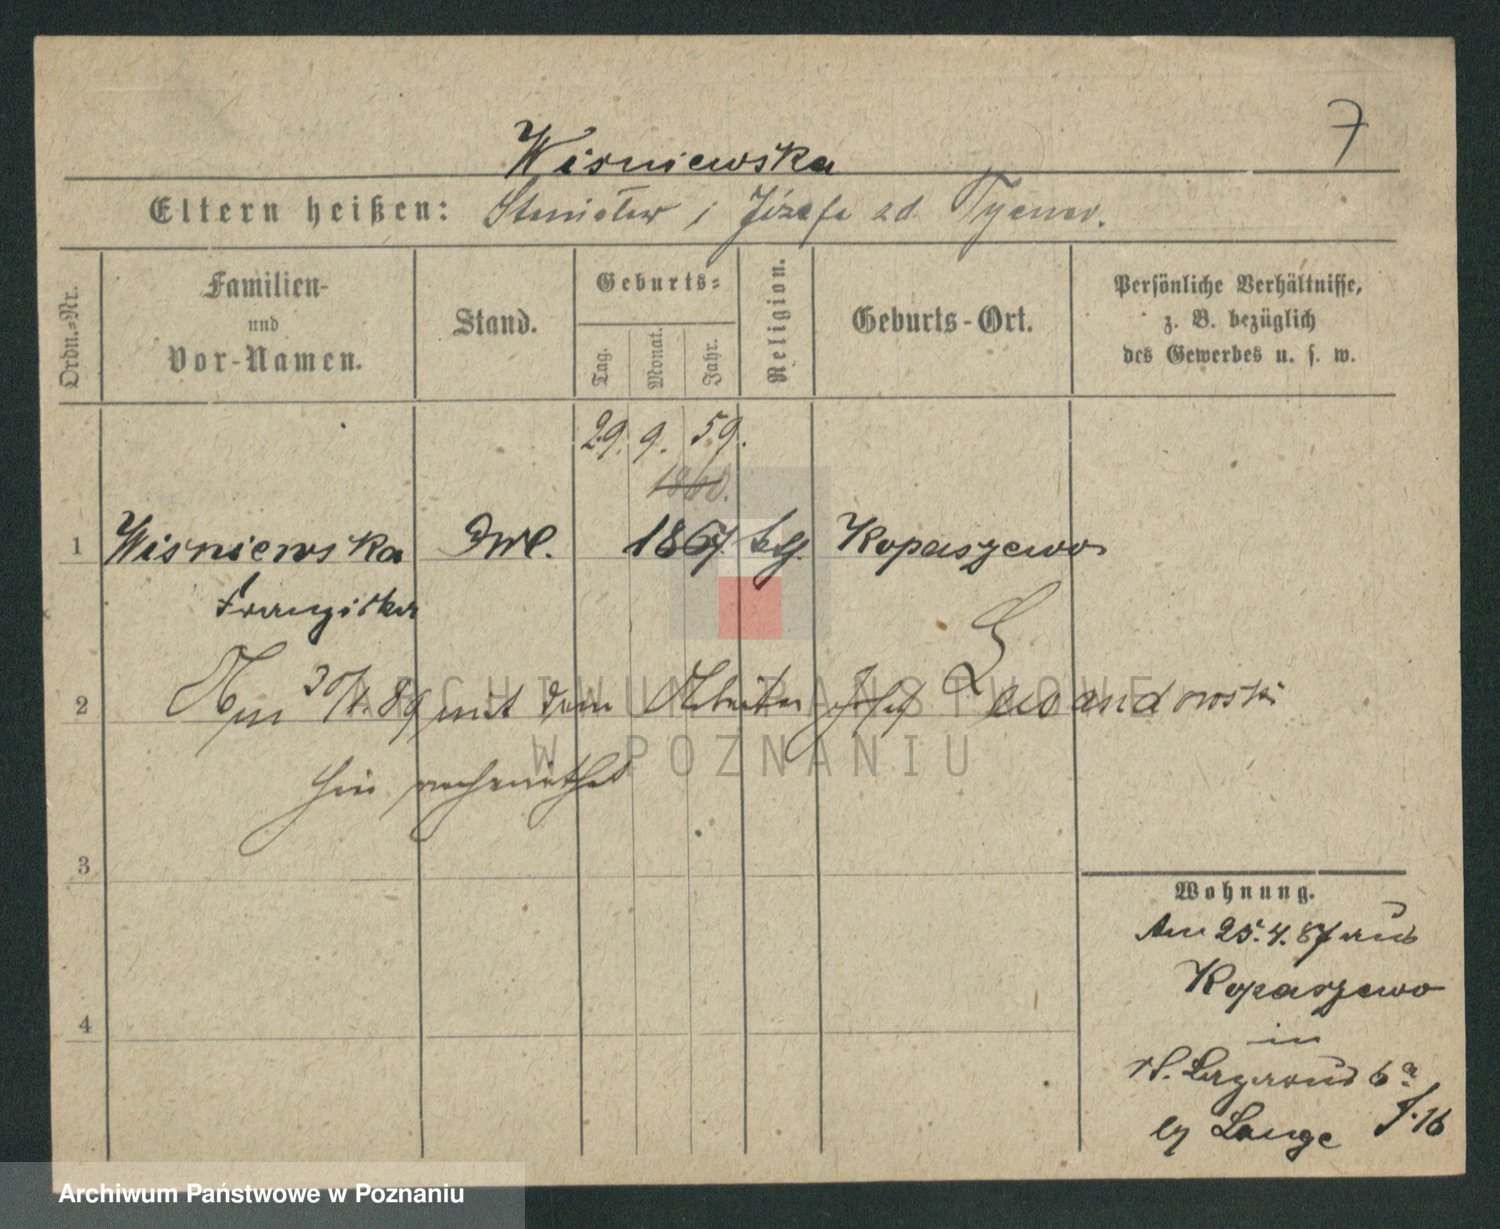 7
Wisniewska
Eltern heißen: Stanisław i Józefa zd.
Ordn.-Nr.
Familien-
und
Vor-Namen.
Stand.
Geburts-
Tag.
Monat.
Jahr.
Religion.
Geburts-Ort.
Persönliche Verhältnisse,
z. B. bezüglich
des Gewerbes u. s. w.
29. 9. 59.
1860.
1 Wisniewska 1867. Kopaszewo
Franziska
2 Am 89 mit dem Arbeiter Josef Lewandowski
hier
3
4
Wohnung.
Am 25. 4. 87 aus
Kopaszewo
in
St. Lazarus 6a
by Lange J. 16
ARCHIWUM PAŃSTWOWE
W POZNANIU
Archiwum Państwowe w Poznaniu